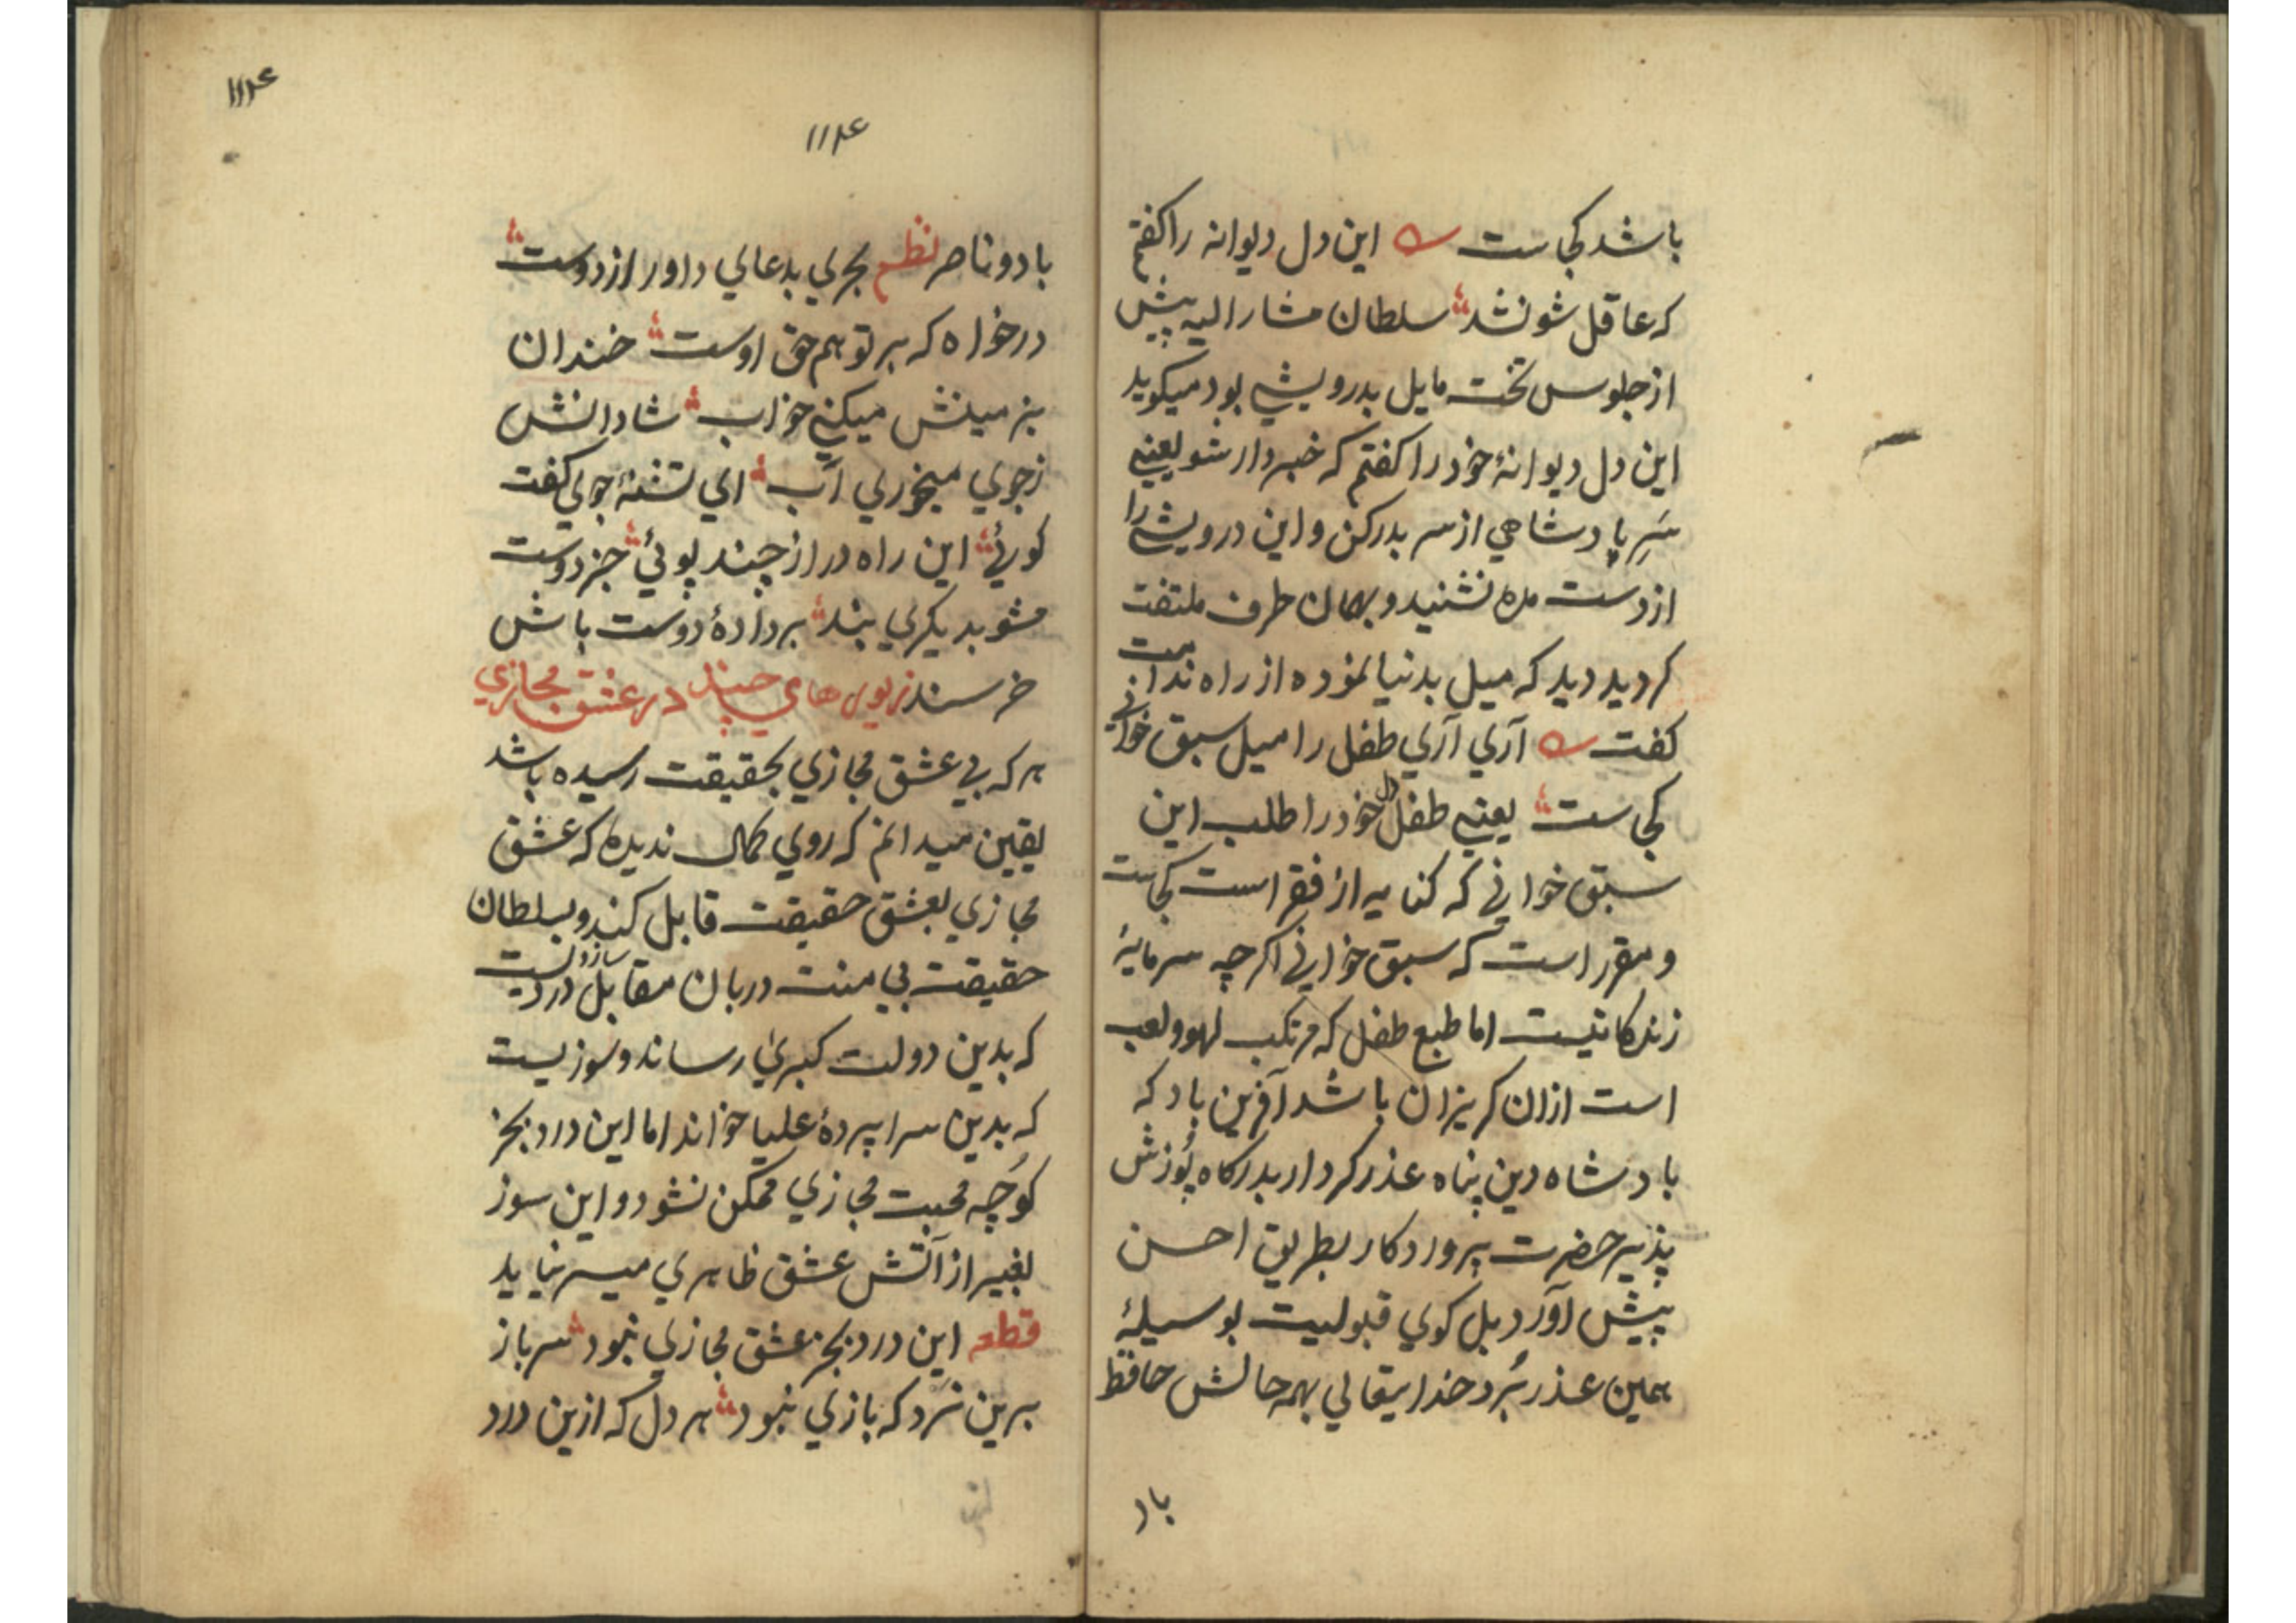 باشد کجاست ؎ این دل دیوانه را گفتم
که عاقل شو نشد سلطان مشار الیه پیش
از جلوس تخت مایل بدرویشی بود میکوید
این دل دیوانهٔ خود را کفتم که خبردار شو یعنی
سَرِ پادشاهی از سر بدر کن و این درویشی را
از دست مده نشنید و بهمان طرف ملتفت
کردید دید که میل بدنیا نموده از راه ندانست
کفت ؎ آری آری طفل را میل سبق خوانی
کجاست یعنی طفل دل خود را طلب این
سبق خوانی که کنایه از فقر است کجاست
و مقرر است که سبق خوانی اکرچه سرمایهٔ
زندکانیست اما طبع طفل که مرتکب لهو و لعب
است ازان کریزان باشد آفرین باد که
بادشاه دین پناه عذر کردار بدرکاه پُوزش
پذیر حضرت پروردکار بطریق احسن
پیش آورد بل کوی قبولیت بوسیلهٔ
همین عذر بُرد خدایتعالی بهمه حالش حافظ
باد
۱۱۲۴
۱۱۲۴
باد و ناصر نظم بحری بدعای داور از دوست
درخواه که بر تو هم حق اوست خندان
بزمینش میکنی خواب شادانش
زجوی میخوری آب ای تشنهٔ جوی کفت
کوئی این راه دراز چند پوئی جز دوست
مشو بدیکری بند بر دادهٔ دوست باش
خرسند زیورهای چند در عشق مجازی
هر که بی عشق مجازی بحقیقت رسیده باشد
یقین میدانم که روی کمال ندیده که عشق
مجازی بعشق حقیقت قابل کند و بسلطان
حقیقت بی منت دربان مقابل سازد دردیست
که بدین دولت کبریٰ رساند و سوزیست
که بدین سراپردهٔ علیا خواند اما این درد بجز
کُوچه محبت مجازی ممکن نشود و این سوز
بغیر از آتش عشق ظاهری میسر نیاید
قطعه این درد بجز عشق مجازی نبود سرباز
برین نَرد که بازی نبود هر دل که ازین درد